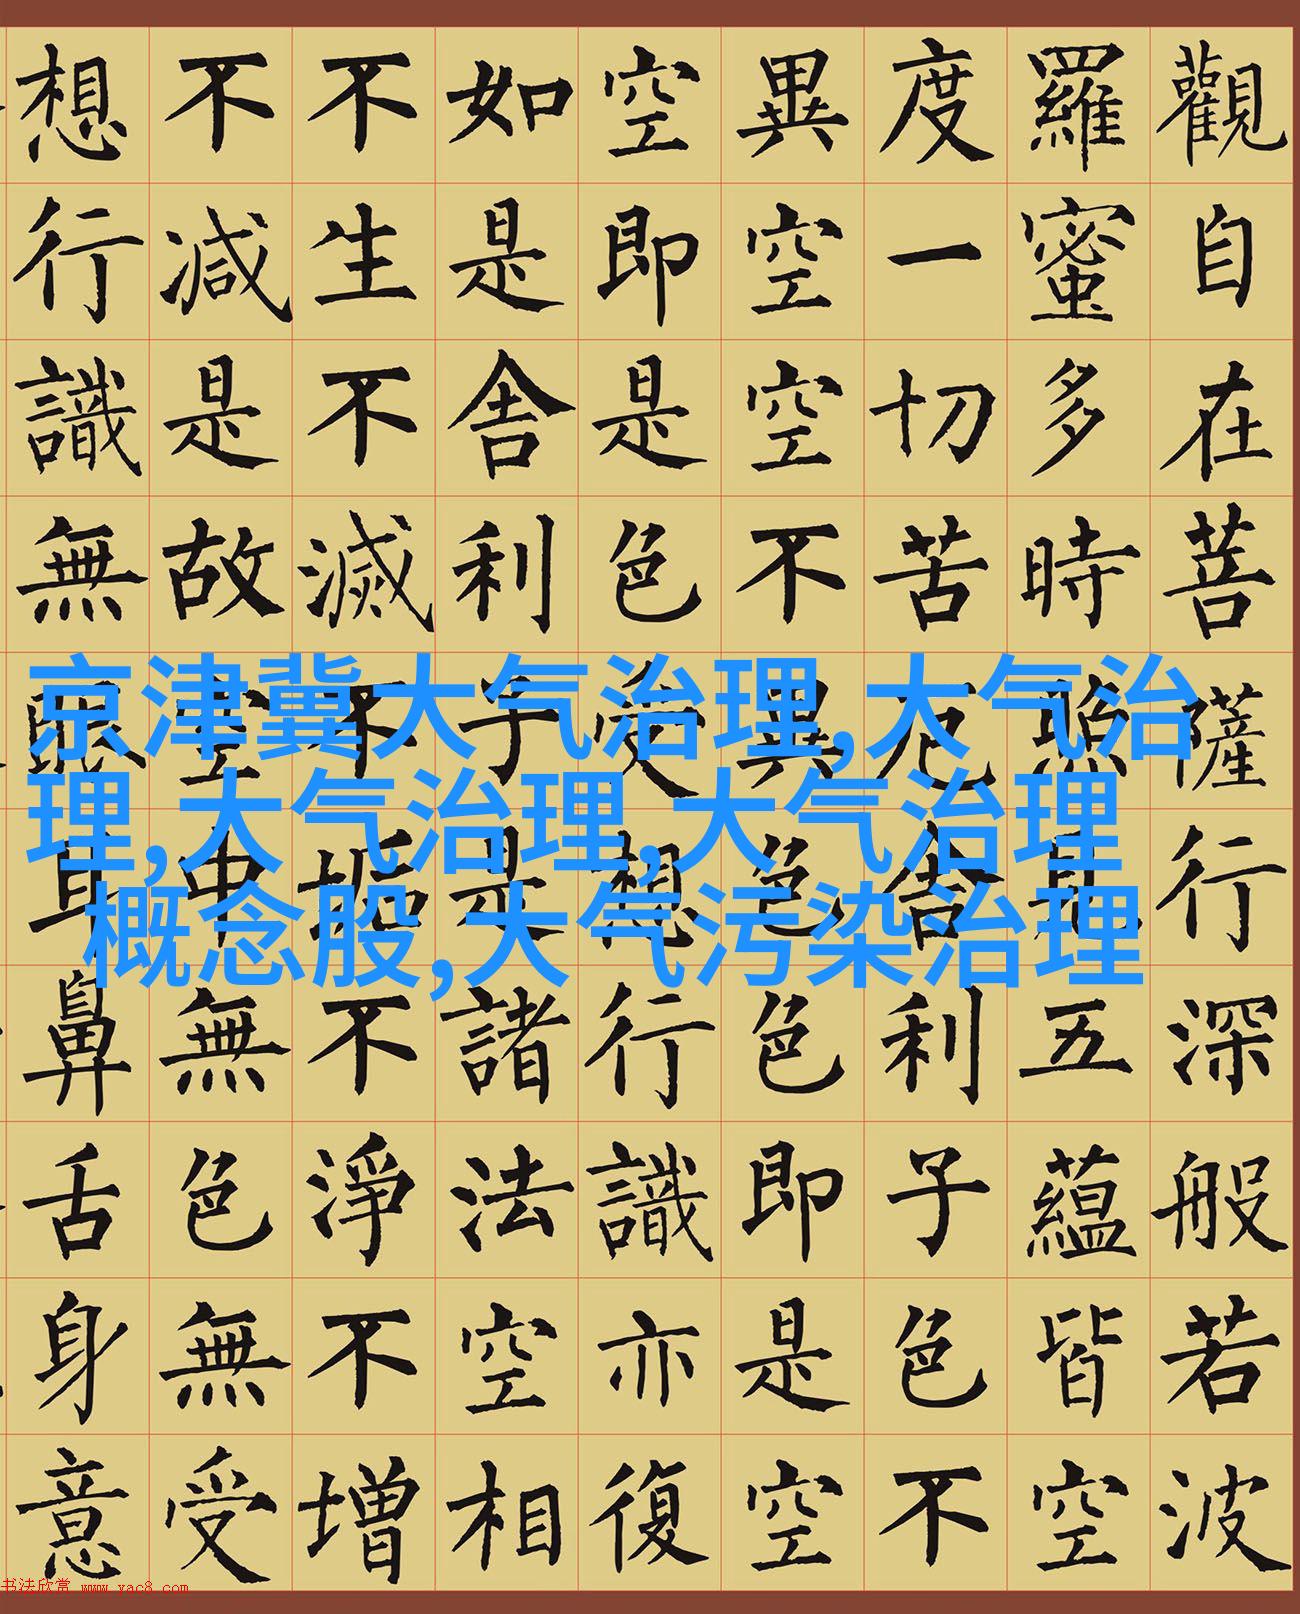 觀自在菩薩行深般若波
羅蜜多時照見五蘊皆空
度一切苦厄舍利子色不
異空空不異色色即是空
空即是色受想行識亦復
如是舍利子是諸法空相
不生不滅不垢不淨不增
不減是故空中無色無受
想行識無眼耳鼻舌身意
京津冀大气治理,大气治
理,大气治理,大气治理
概念股,大气污染治理
书法欣赏 www.yac8.com